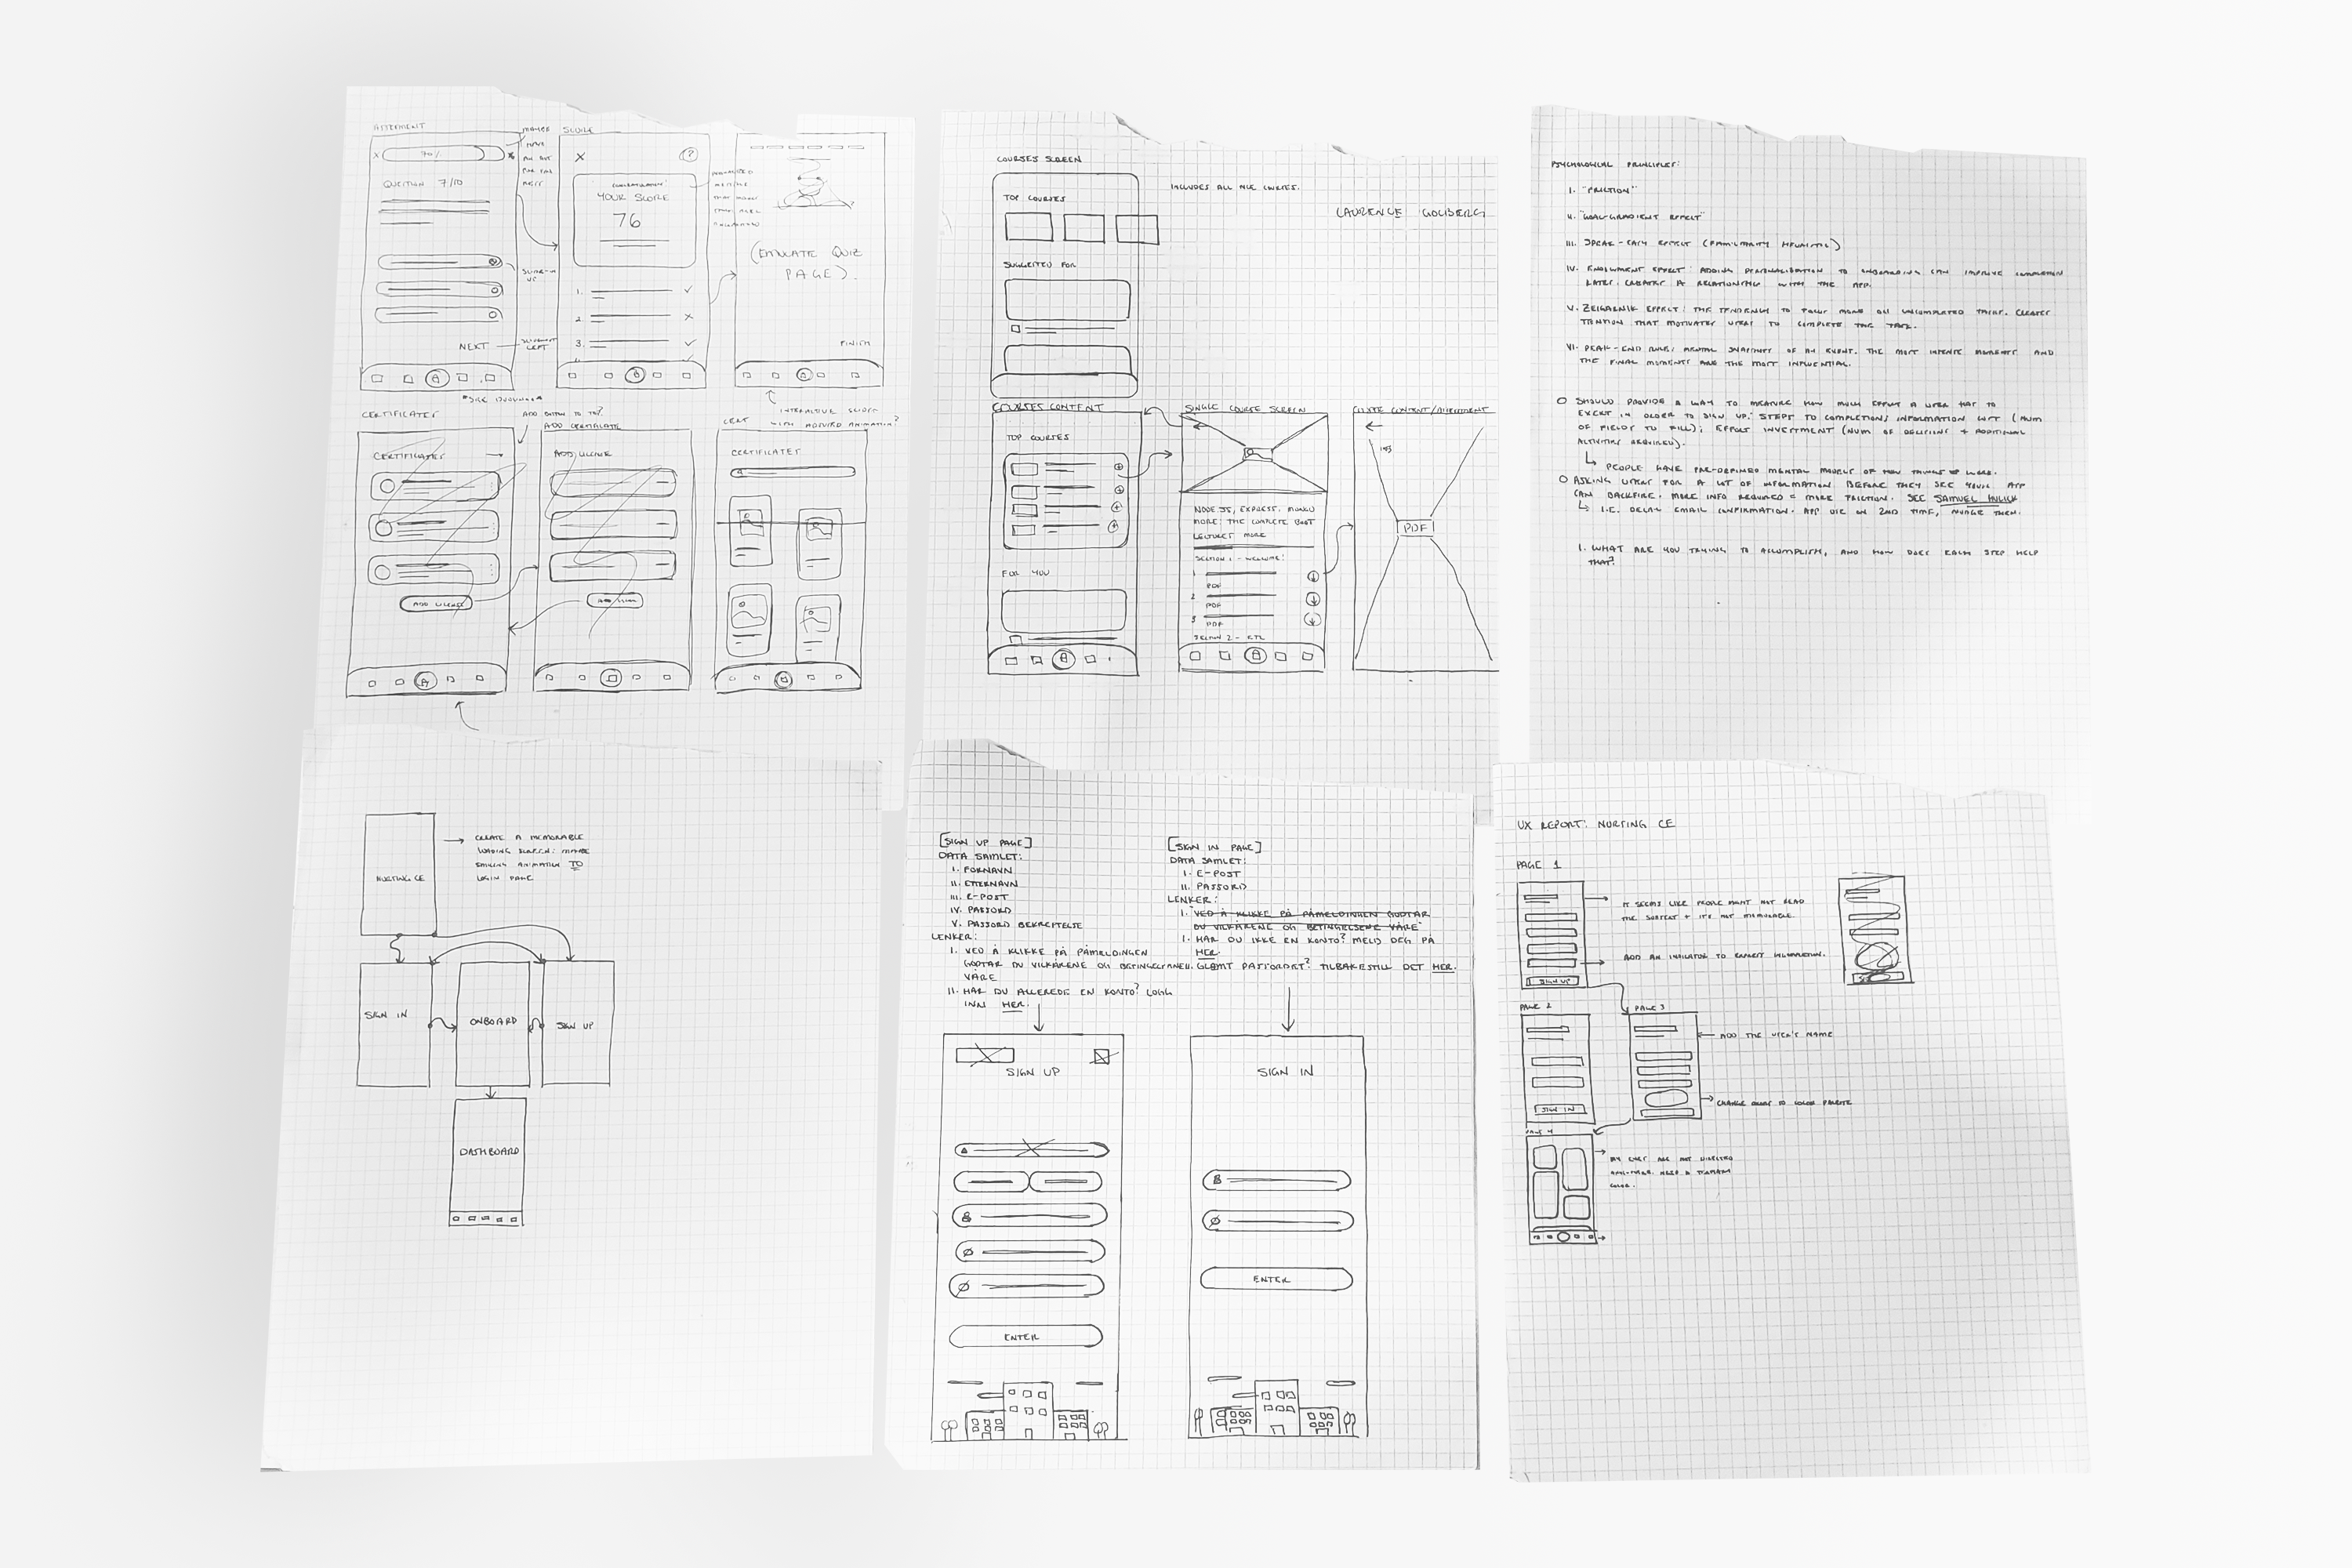 ASSESSMENT
70%
QUESTION 7/10
NEXT
SCORE
YOUR SCORE
76
1.
2.
3.
(EMULATE QUIZ
PAGE).
FINISH
CERTIFICATES
CERTIFICATES
ADD LICENSE
ADD BUTTON TO TOP?
ADD CERTIFICATE
ADD LICENSE
CERT
CERTIFICATES
COURSES SCREEN
TOP COURSES
SUGGESTED FOR
INCLUDES ALL NCE COURSES.
LAURENCE GOLDBERG
COURSES CONTENT
TOP COURSES
FOR YOU
SINGLE COURSE SCREEN
NODE JS, EXPRESS, MONGO
MORE: THE COMPLETE BOOT
LECTURES MORE
SECTION 1 - WELCOME!
1
PDF
2
PDF
3
PDF
SECTION 2 - ETC
PDF
PSYCHOLOGICAL PRINCIPLES:
I. "FRICTION"
II. "GOAL-GRADIENT EFFECT"
III. SPEAK-EASY EFFECT (FAMILIARITY HEURISTIC)
IV. ENDOWMENT EFFECT: ADDING PERSONALISATION TO ONBOARDING CAN IMPROVE COMPLETION
LATER. CREATES A RELATIONSHIP WITH THE APP.
V. ZEIGARNIK EFFECT: THE TENDENCY TO FOCUS MORE ON UNCOMPLETED THINGS. CREATES
TENSION THAT MOTIVATES USERS TO COMPLETE THE TASK.
VI. PEAK-END RULE: MENTAL SNAPSHOT OF AN EVENT. THE MOST INTENSE MOMENTS AND
THE FINAL MOMENTS ARE THE MOST INFLUENTIAL.
SHOULD PROVIDE A WAY TO MEASURE HOW MUCH EFFORT A USER HAS TO
EXERT IN ORDER TO SIGN UP: STEPS TO COMPLETION; INFORMATION LEFT (NUM
OF FIELDS TO FILL); EFFORT INVESTMENT (NUM OF DECISIONS + ADDITIONAL
ACTIVITIES REQUIRED).
PEOPLE HAVE PRE-DEFINED MENTAL MODELS OF HOW THINGS WORK.
ASKING USERS FOR A LOT OF INFORMATION BEFORE THEY SEE YOUR APP
CAN BACKFIRE. MORE INFO REQUIRED = MORE FRICTION. SEE SAMUEL HULICK
I.E. DELAY EMAIL CONFIRMATION. APP USE ON 2ND TIME, NUDGE THEM.
1. WHAT ARE YOU TRYING TO ACCOMPLISH, AND HOW DOES EACH STEP HELP
THAT?
NURSING CE
CREATE A MEMORABLE
LOADING SCREEN: MAYBE
ANIMATION TO
LOGIN PAGE
SIGN IN
ONBOARD
SIGN UP
DASHBOARD
[SIGN UP PAGE]
DATA SAMLET:
I. FORNAVN
II. ETTERNAVN
III. E-POST
IV. PASSORD
V. PASSORD BEKREFTELSE
LENKER:
I. VED Å KLIKKE PÅ PÅMELDINGEN
GODTAR DU VILKÅRENE OG BETINGELSENE
VÅRE
II. HAR DU ALLEREDE EN KONTO? LOGG
INN HER.
[SIGN IN PAGE]
DATA SAMLET:
I. E-POST
II. PASSORD
LENKER:
I. VED Å KLIKKE PÅ PÅMELDINGEN GODTAR
DU VILKÅRENE OG BETINGELSENE VÅRE
I. HAR DU IKKE EN KONTO? MELD DEG PÅ
HER.
II. GLEMT PASSORDET? TILBAKESTILL DET HER.
SIGN UP
ENTER
SIGN IN
ENTER
UX REPORT: NURSING CE
PAGE 1
IT SEEMS LIKE PEOPLE MIGHT NOT READ
THE SUBTEXT + IT'S NOT MEMORABLE.
ADD AN INDICATOR TO EXPECT COMPLETION.
SIGN UP
PAGE 2
SIGN IN
PAGE 3
ADD THE USER'S NAME
CHANGE COLORS TO COLOR PALETTE
PAGE 4